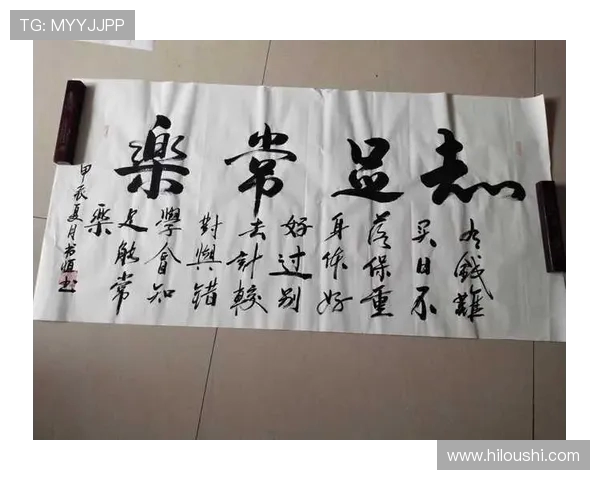 TG: MYYJJPP
知足常樂
有錢難
買日不
落保重
身体好
好过别
去計較
對與錯
學會知
足能常
樂
甲辰夏月书恒书
www.hiloushi.com